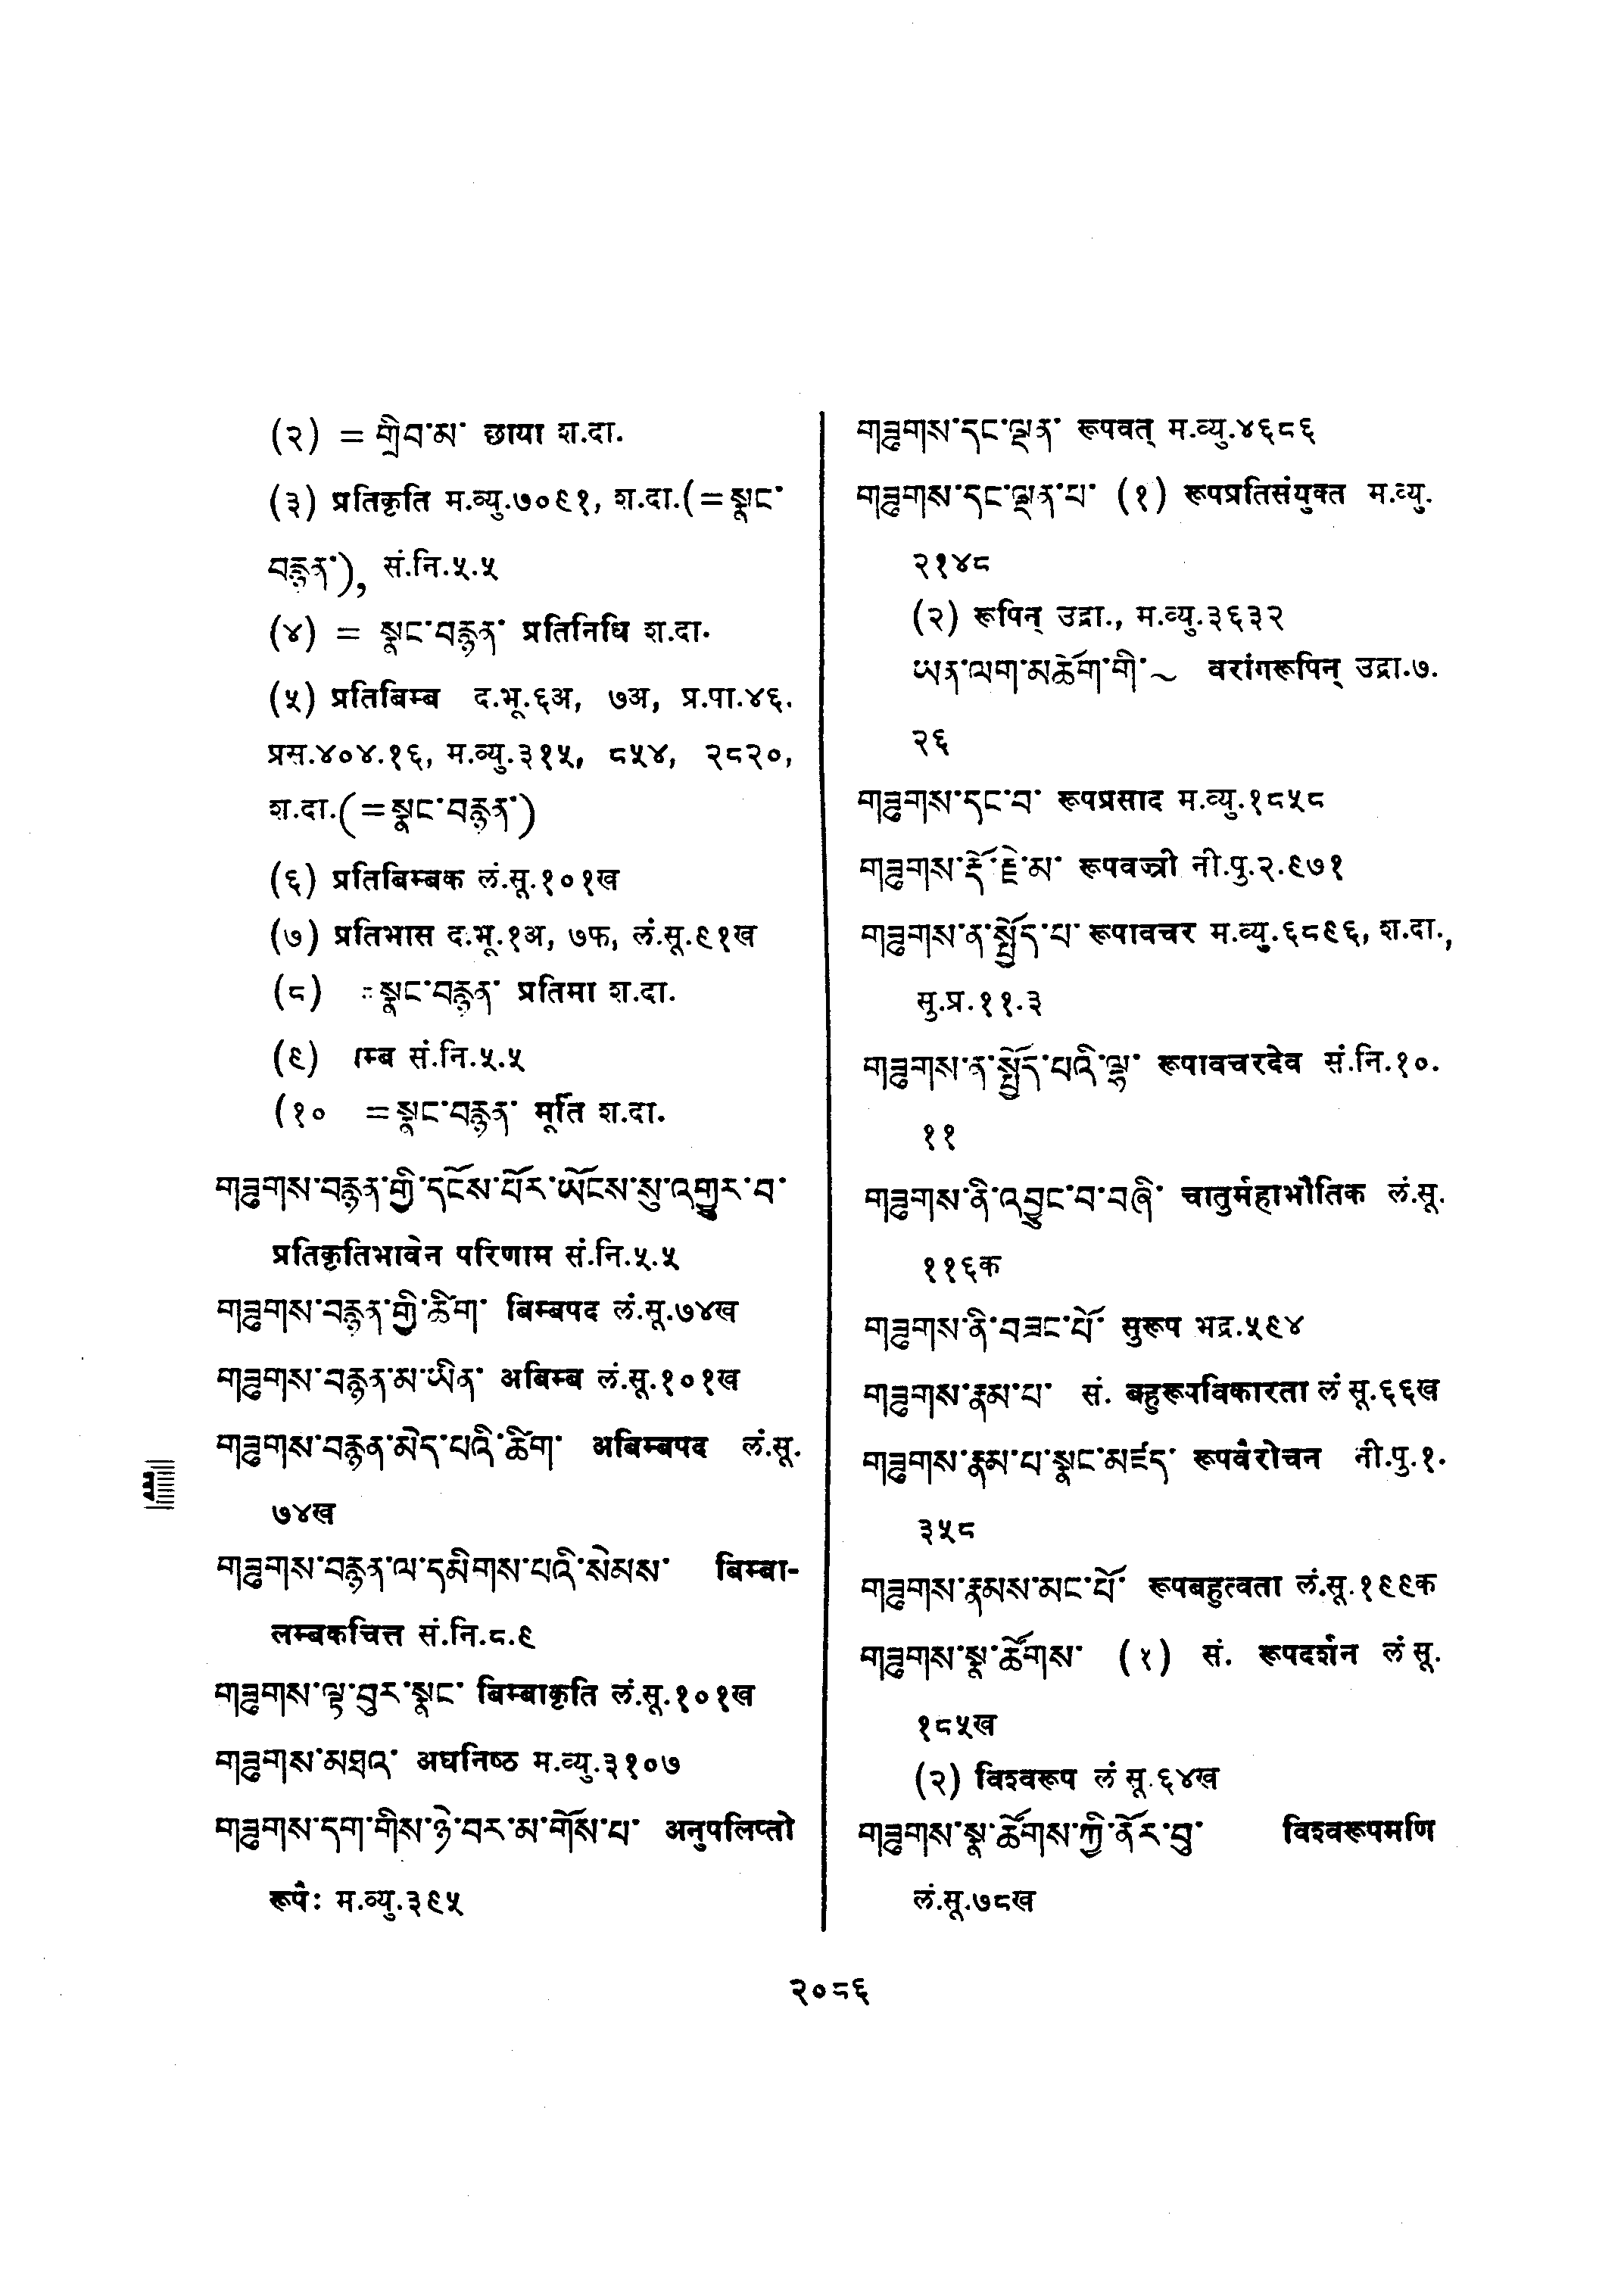 (२) = གྲིབ་མ་ छाया श.दा.
(३) प्रतिकृति म.व्यु.७०९१, श.दा.(=སྣང་
བརྙན་), सं.नि.५.५
(४) = སྣང་བརྙན་ प्रतिनिधि श.दा.
(५) प्रतिबिम्ब द.भू.६अ, ७अ, प्र.पा.४६.
प्रस.४०४.१६, म.व्यु.३१५, ८५४, २८२०,
श.दा.(=སྣང་བརྙན་)
(६) प्रतिबिम्बक लं.सू.१०१ख
(७) प्रतिभास द.भू.१अ, ७फ, लं.सू.९१ख
(८) =སྣང་བརྙན་ प्रतिमा श.दा.
(९) म्ब सं.नि.५.५
(१० =སྣང་བརྙན་ मूर्ति श.दा.
གཟུགས་བརྙན་གྱི་དངོས་པོར་ཡོངས་སུ་འགྱུར་བ་
प्रतिकृतिभावेन परिणाम सं.नि.५.५
གཟུགས་བརྙན་གྱི་ཚིག་ बिम्बपद लं.सू.७४ख
གཟུགས་བརྙན་མ་ཡིན་ अबिम्ब लं.सू.१०१ख
གཟུགས་བརྙན་མེད་པའི་ཚིག་ अबिम्बपद लं.सू.
७४ख
གཟུགས་བརྙན་ལ་དམིགས་པའི་སེམས་ बिम्बा-
लम्बकचित्त सं.नि.८.९
གཟུགས་ལྟ་བུར་སྣང་ बिम्बाकृति लं.सू.१०१ख
གཟུགས་མཐའ་ अघनिष्ठ म.व्यु.३१०७
གཟུགས་དག་གིས་ཉེ་བར་མ་གོས་པ་ अनुपलिप्तो
रूपैः म.व्यु.३९५
གཟུགས་དང་ལྡན་ रूपवत् म.व्यु.४६८६
གཟུགས་དང་ལྡན་པ་ (१) रूपप्रतिसंयुक्त म.व्यु.
२१४८
(२) रूपिन् उद्रा., म.व्यु.३६३२
ཡན་ལག་མཆོག་གི་~ वरांगरूपिन् उद्रा.७.
२६
གཟུགས་དང་བ་ रूपप्रसाद म.व्यु.१८५८
གཟུགས་རྡོ་རྗེ་མ་ रूपवज्री नी.पु.२.९७१
གཟུགས་ན་སྤྱོད་པ་ रूपावचर म.व्यु.६८९६, श.दा.,
सु.प्र.११.३
གཟུགས་ན་སྤྱོད་པའི་ལྷ་ रूपावचरदेव सं.नि.१०.
११
གཟུགས་ནི་འབྱུང་བ་བཞི་ चातुर्महाभौतिक लं.सू.
११६क
གཟུགས་ནི་བཟང་པོ་ सुरूप भद्र.५९४
གཟུགས་རྣམ་པ་ सं. बहुरूपविकारता लं सू.६६ख
གཟུགས་རྣམ་པ་སྣང་མཛད་ रूपवैरोचन नी.पु.१.
३५८
གཟུགས་རྣམས་མང་པོ་ रूपबहुत्वता लं.सू.१९९क
གཟུགས་སྣ་ཚོགས་ (१) सं. रूपदर्शन लं सू.
१८५ख
(२) विश्वरूप लं सू.६४ख
གཟུགས་སྣ་ཚོགས་ཀྱི་ནོར་བུ་ विश्वरूपमणि
लं.सू.७८ख
२०८६